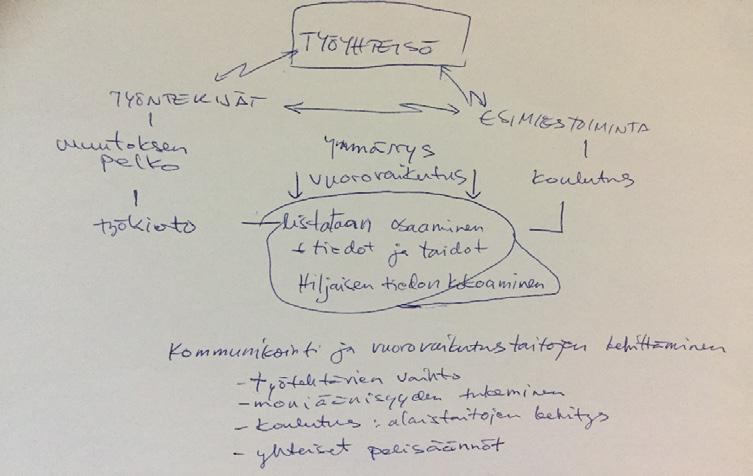 TYÖYHTEISÖ
TYÖNTEKIJÄT
ESIMIESTOIMINTA
muutoksen
pelko
Ymmärrys
vuorovaikutus
koulutus
työkierto
listataan osaaminen
+ tiedot ja taidot
Hiljaisen tiedon kokoaminen
Kommunikointi ja vuorovaikutustaitojen kehittäminen
- työtehtävien vaihto
- moniäänisyyden tukeminen
- koulutus : alaistaitojen kehitys
- yhteiset pelisäännöt